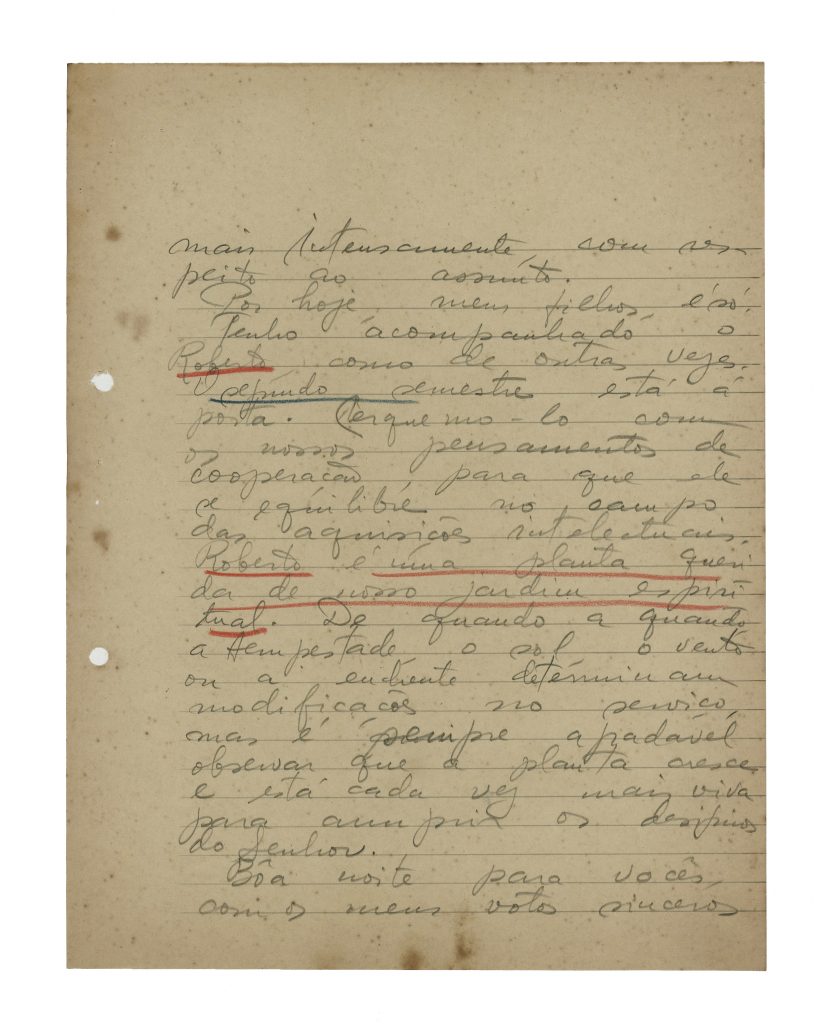 mais intensamente, com res-
peito ao assunto.
Por hoje, meus filhos, é só.
Tenho acompanhado o
Roberto como de outras vezes.
O segundo semestre está á
porta. Cerquemo-lo com
os nossos pensamentos de
cooperação, para que ele
se equilibre no campo
das aquisições intelectuais.
Roberto é uma planta queri
da de nosso jardim espiri
tual. De quando a quando
a tempestade o sol o vento
ou a enchente determinam
modificações no serviço,
mas é sempre agradável
observar que a planta cresce
e está cada vez mais viva
para cumprir os desígnios
do Senhor.
Bôa noite para vocês,
com os meus votos sinceros